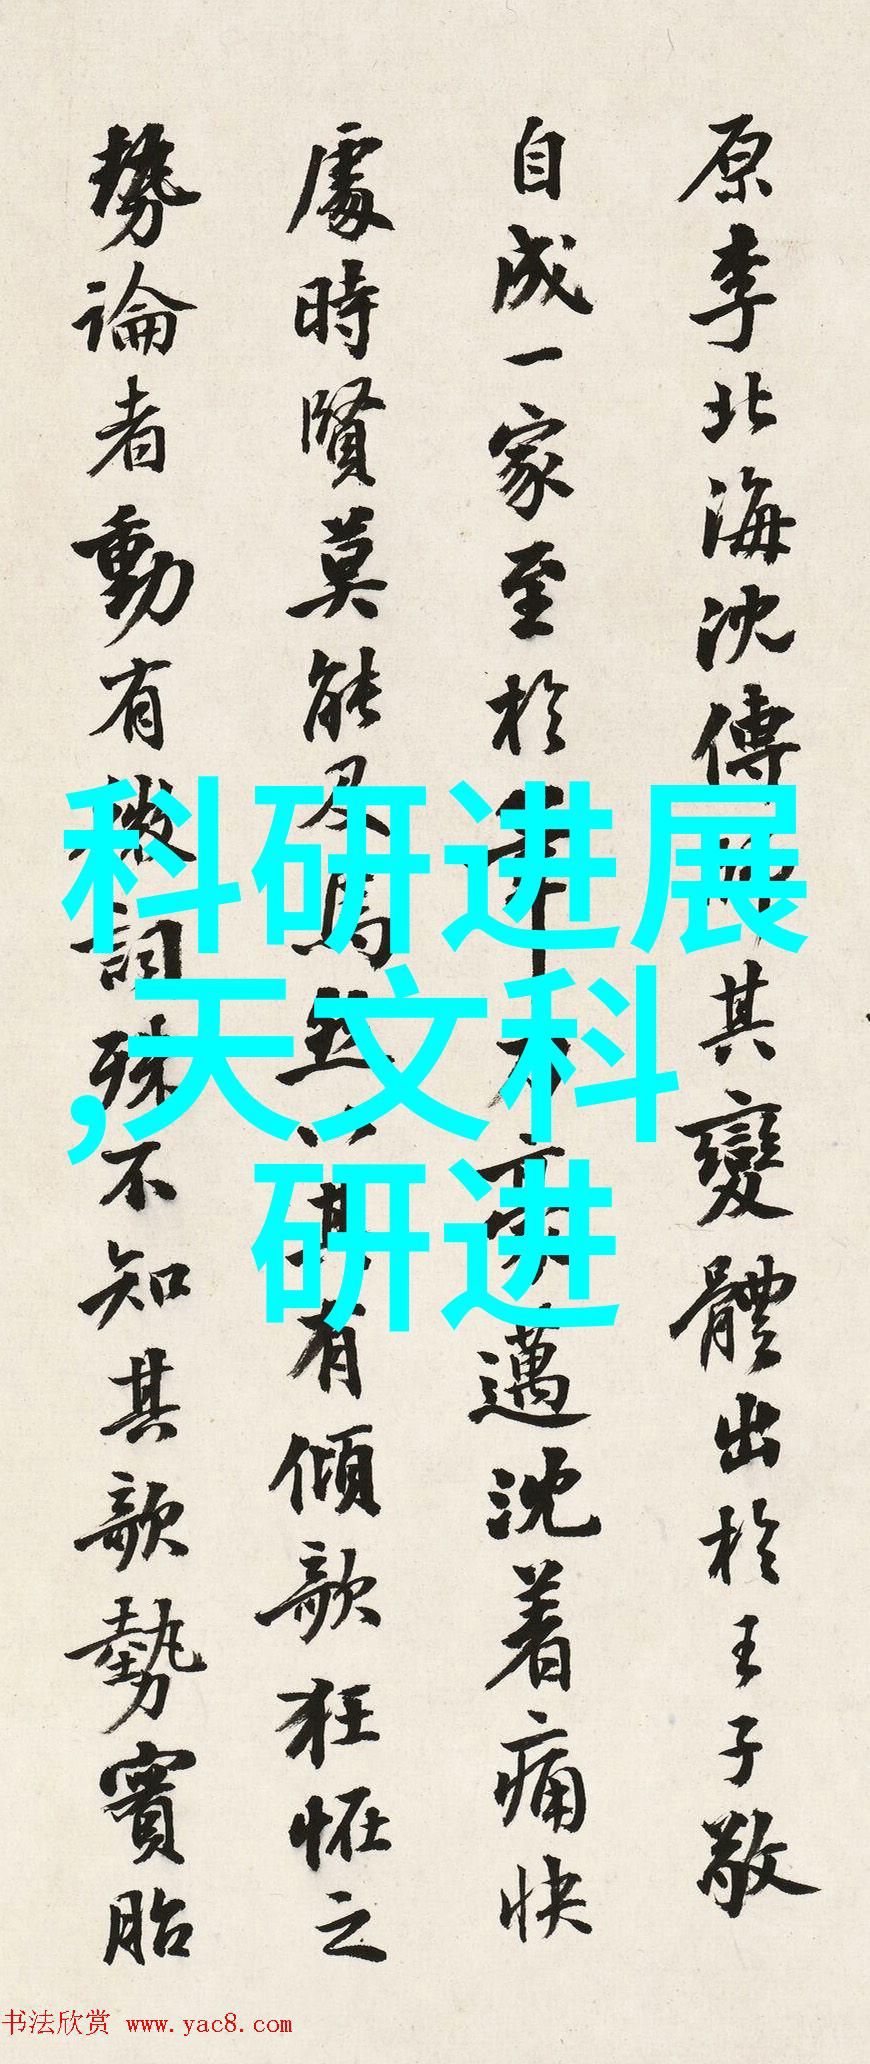 原李北海沈傳師其變體出於王子敬
自成一家至於筆力豪邁沈着痛快
處時賢莫能及焉然以其有傾欹狂怪之
勢論者動有微詞殊不知其欹勢實胎
科研进展
,天文科
研进
书法欣赏 www.yac8.com